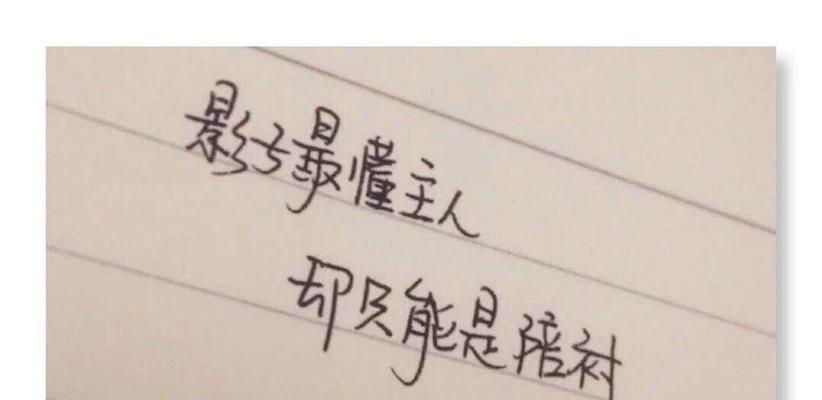 影子最懂主人
却只能是陪衬